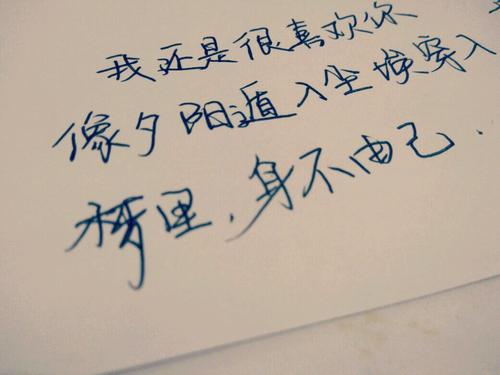 我还是很喜欢你
像夕阳遁入尘埃穿入
梦里，身不由己.